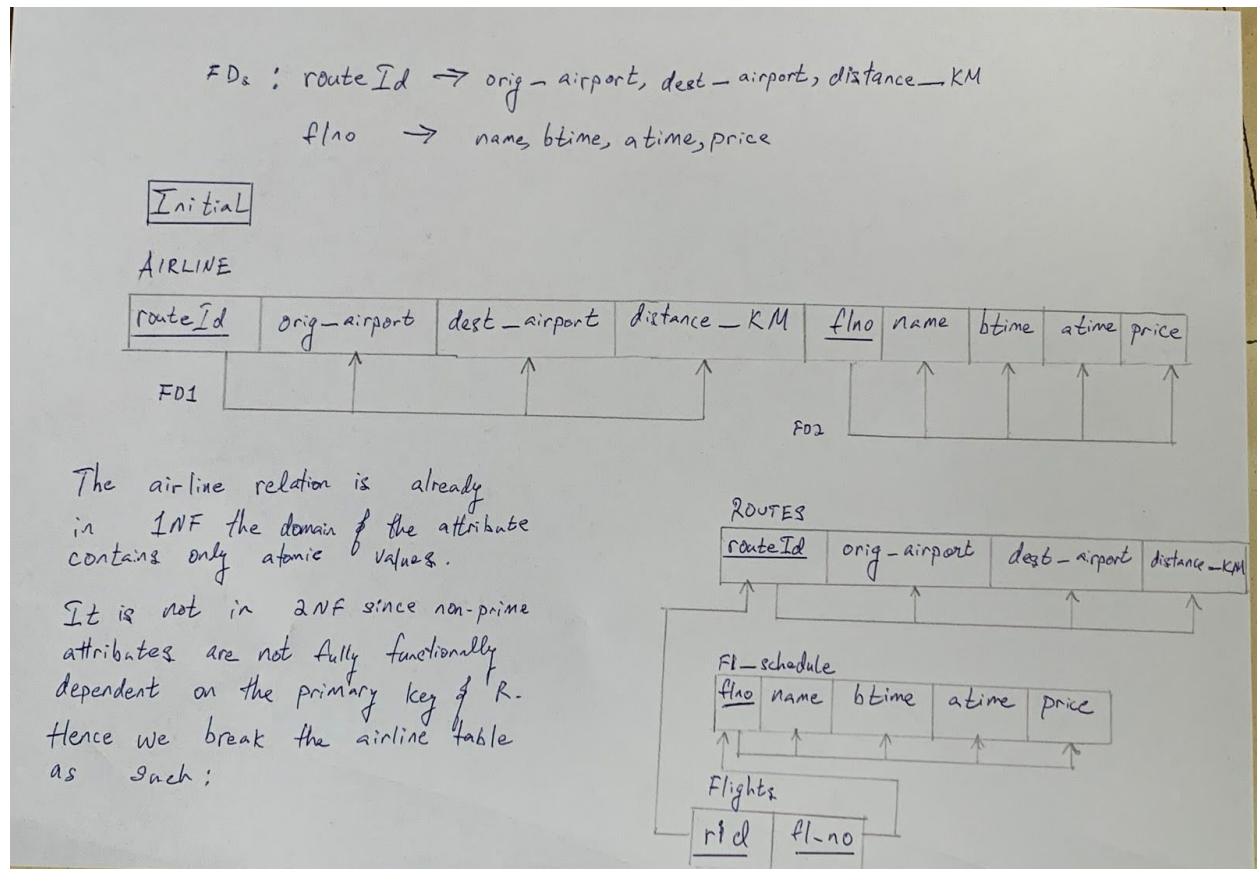 FDs : routeId → orig_airport, dest_airport, distance_KM
flno → name, btime, atime, price
Initial
AIRLINE
routeId orig_airport dest_airport distance_KM flno name btime atime price
FD1
FD2
The airline relation is already
in 1NF the domain of the attribute
contains only atomic values.
It is not in 2NF since non-prime
attributes are not fully functionally
dependent on the primary key of R.
Hence we break the airline table
as such:
ROUTES
routeId orig_airport dest_airport distance_KM
Fl_schedule
flno name btime atime price
Flights
rid fl_no